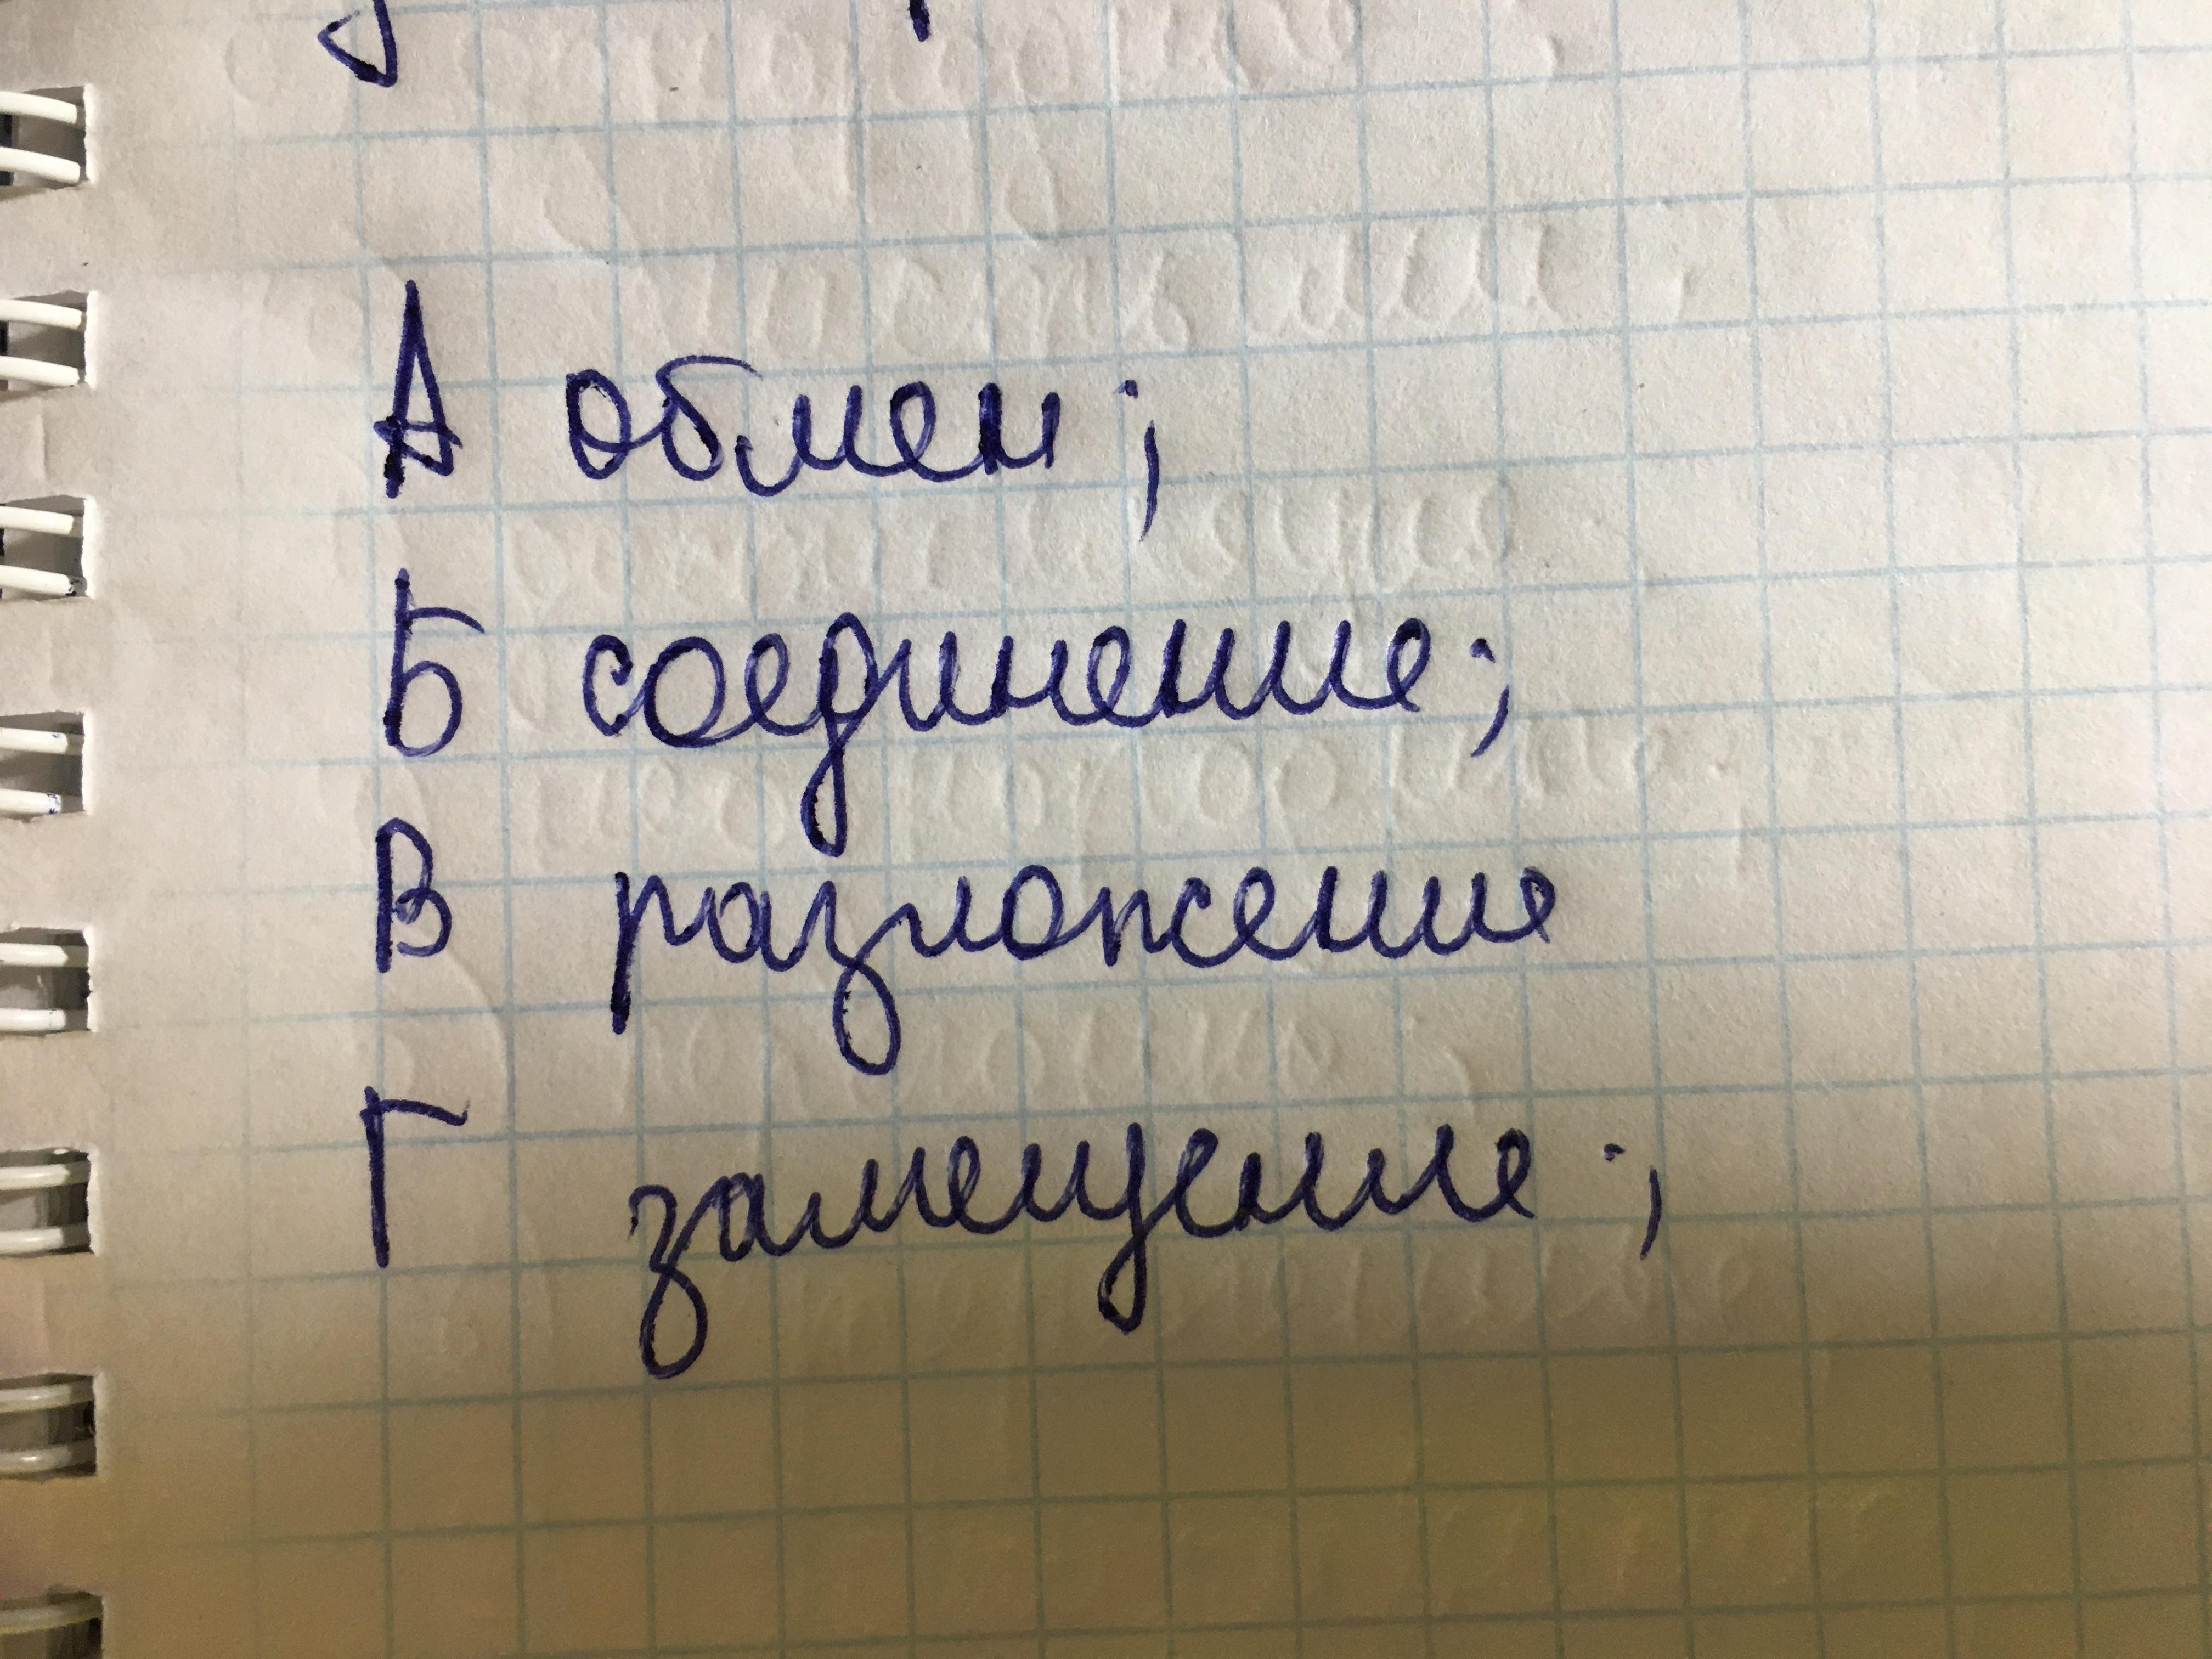 А обмен;
Б соединение;
В разложение
Г замещение;